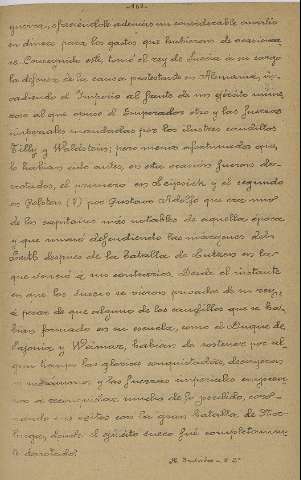 -162-
guerra, ofreciéndole además un considerable auxilio
en dinero para los gastos que hubieran de ocasionar-
se. Conseguido esto, tomó el rey de Suecia a su cargo
la defensa de la causa protestante en Alemania, in-
vadiendo el Imperio al frente de un ejército nume-
roso al que opuso el Emperador otro y las fuerzas
imperiales mandadas por los ilustres caudillos
Tilly y Walstein; pero menos afortunados que
lo habían sido antes, en esta ocasión fueron de-
rrotados, el primero en Leipsick y el segundo
en (?) por Gustavo Adolfo que era uno
de los capitanes más notables de aquella época
y que murió defendiendo las márgenes del
después de la batalla de Lutzen en la
que venció a sus contrarios. Desde el instante
en que los suecos se vieron privados de su rey,
á pesar de que algunos de los caudillos que se ha-
bían formado en su escuela, como el Duque de
Sajonia y Weimar, habían de sostener por al-
gún tiempo las glorias conquistadas, decayeron
y las fuerzas imperiales empezaron
a reconquistar mucho de lo perdido, coro-
nando sus éxitos con la gran batalla de Nor-
linga, donde el ejército sueco fué completamen-
te derrotado.